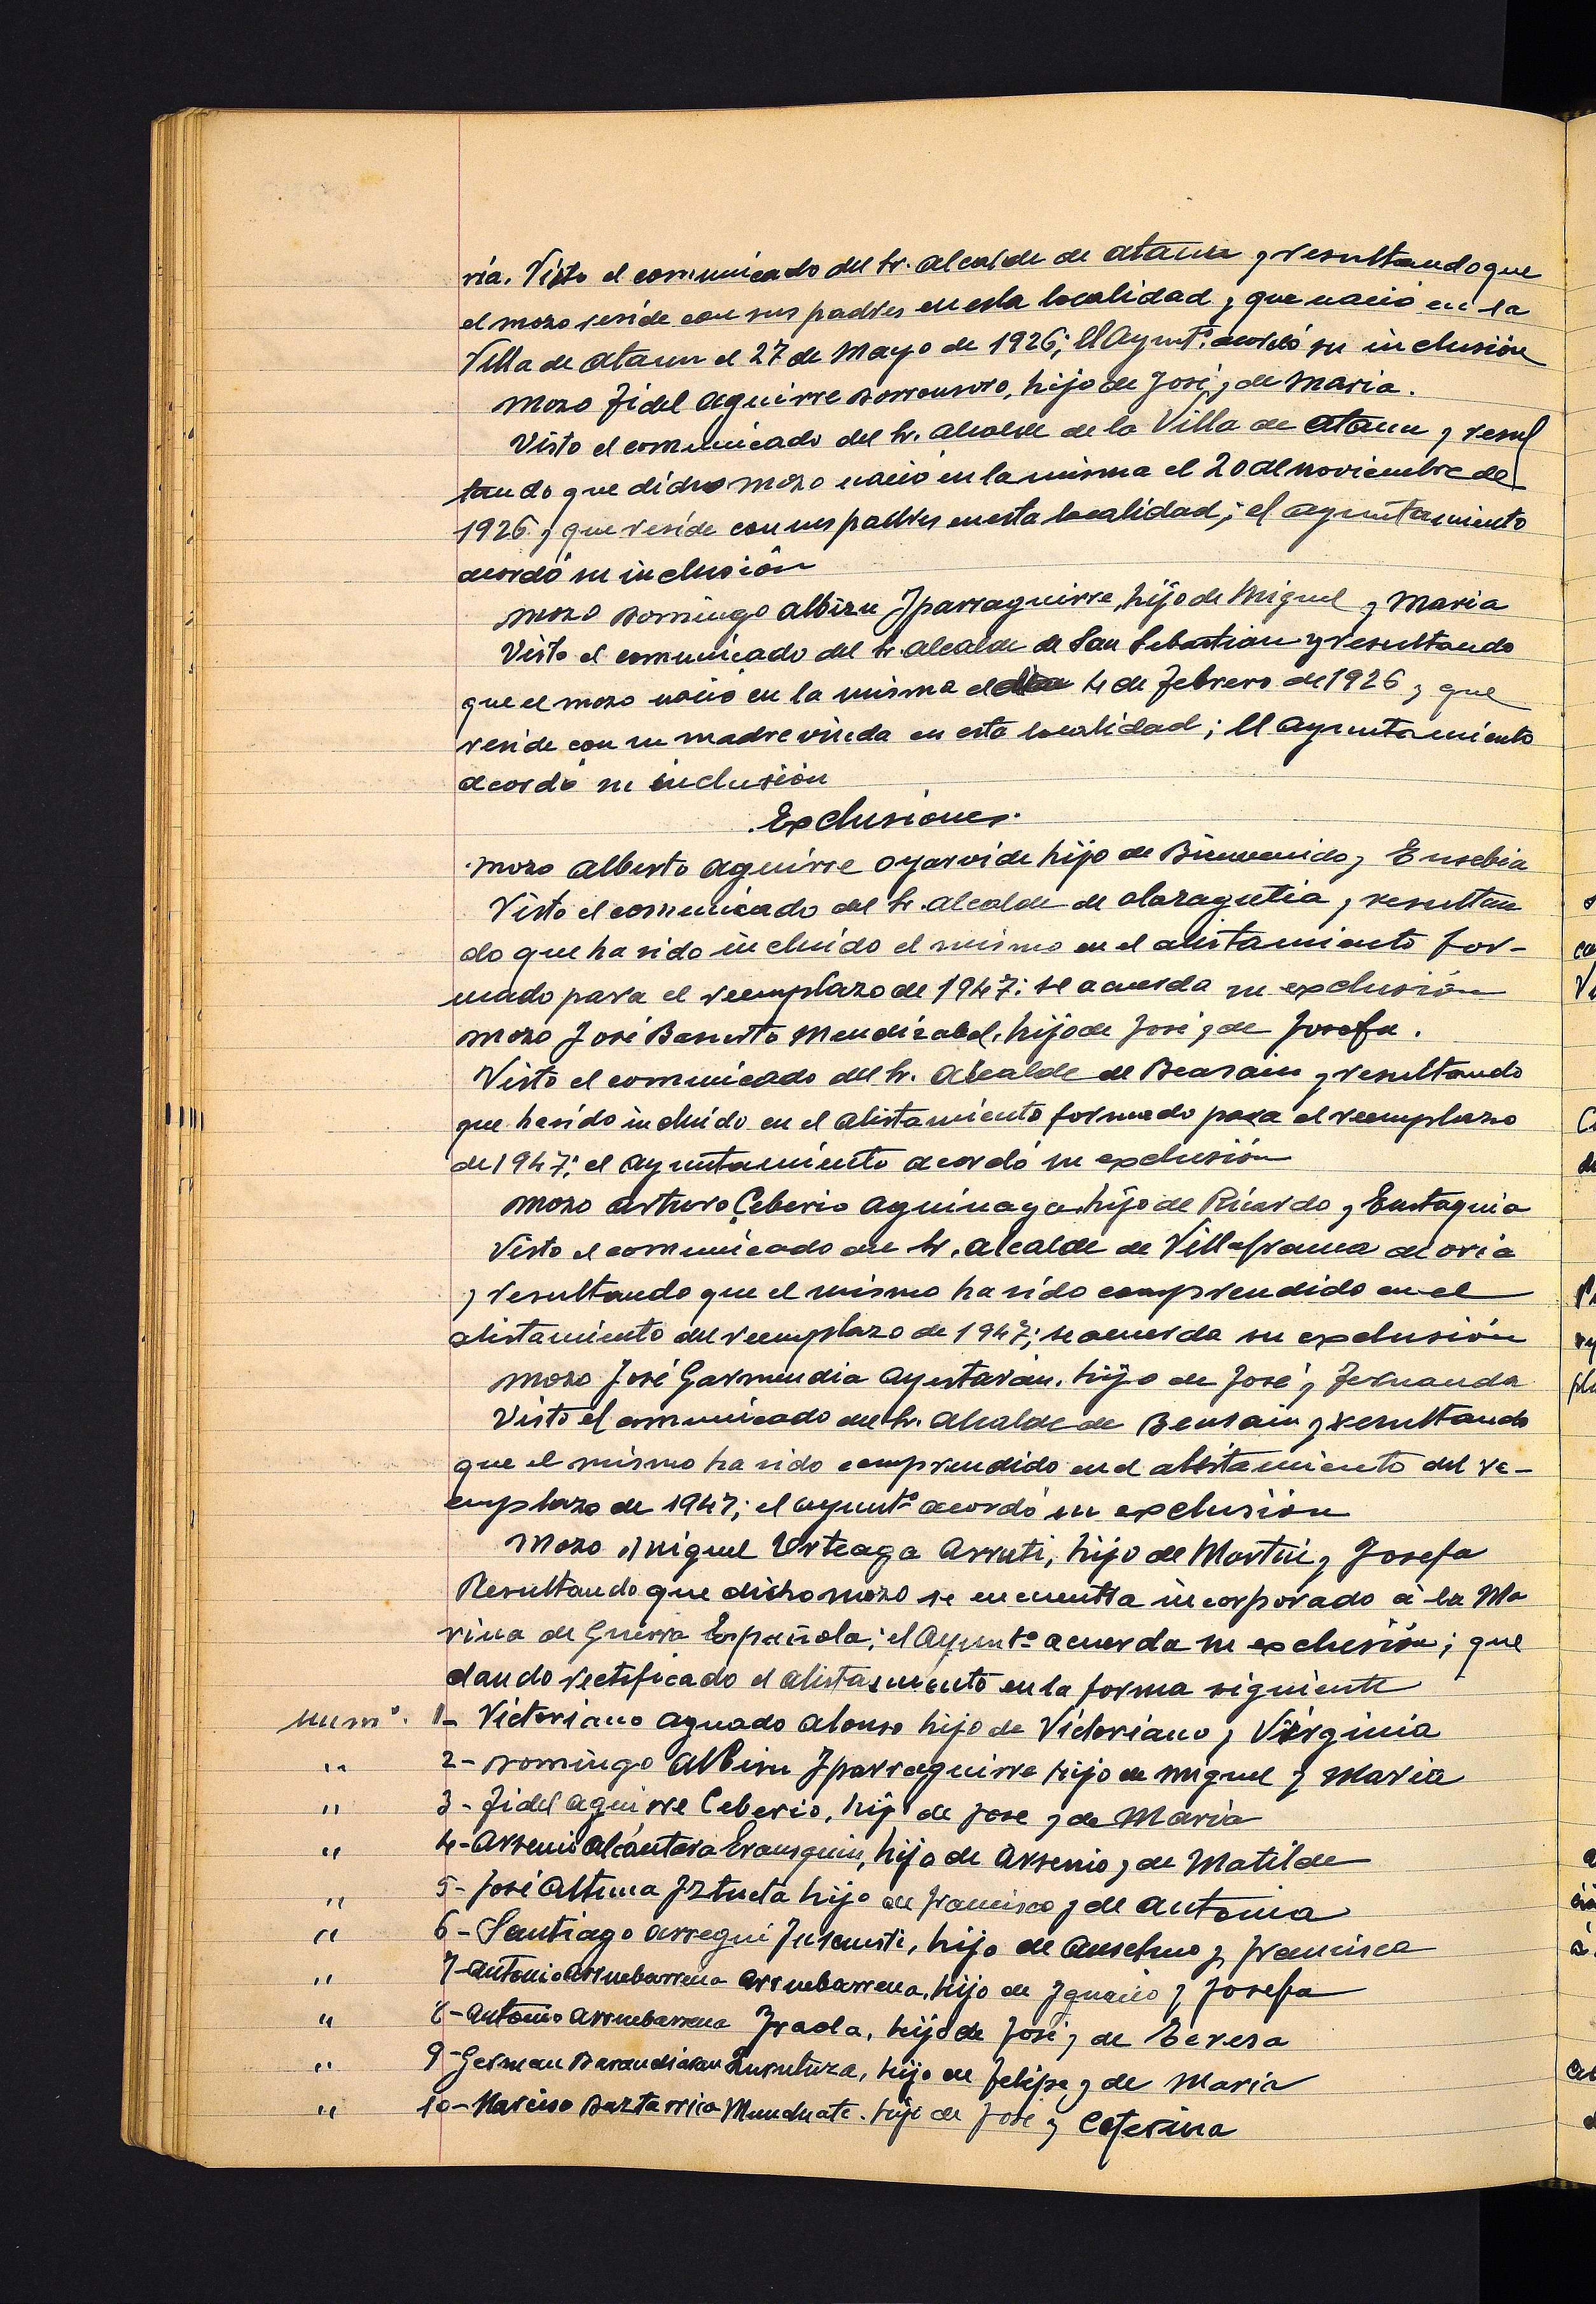 ria. Visto el comunicado del Sr. Alcalde de Ataun y resultando que
el mozo reside con sus padres en esta localidad y que nació en la
Villa de Ataun el 27 de Mayo de 1926; El Ayuntº. acordó su inclusión
Mozo Fidel Aguirre Dorronsoro, hijo de José y de Maria.
Visto el comunicado del Sr. Alcalde de la Villa de Ataun y resul
tando que dicho mozo nació en la misma el 20 de noviembre de
1926 y que reside con sus padres en esta localidad; el ayuntamiento
acordó su inclusión
Mozo Domingo Albizu Iparraguirre, hijo de Miguel y Maria
Visto el comunicado del Sr. Alcalde de San Sebastian y resultando
que el mozo nació en la misma el dia 4 de Febrero de 1926 y que
reside con su madre viuda en esta localidad; El Ayuntamiento
acordó su inclusión
Exclusiones.
Mozo Alberto Aguirre Oyarvide hijo de Bienvenido y Eusebia
Visto el comunicado del Sr. Alcalde de Olazagutia y resultan
do que ha sido incluido el mismo en el alistamiento for-
mado para el reemplazo de 1947: se acuerda su exclusión
Mozo José Basurto Mendizabal, hijo de José y de Josefa.
Visto el comunicado del Sr. Alcalde de Beasain y resultando
que ha sido incluido en el alistamiento formado para el reemplazo
de 1947; el ayuntamiento acordó su exclusión
Mozo Arturo Ceberio Aguinaga hijo de Ricardo y Eustaquia
Visto el comunicado del Sr. Alcalde de Villafranca de Oria
y resultando que el mismo ha sido comprendido en el
alistamiento del reemplazo de 1947; se acuerda su exclusión
Mozo José Garmendia Ayestarán. hijo de José y Fernanda
Visto el comunicado del Sr. Alcalde de Beasain y resultando
que el mismo ha sido comprendido en el alistamiento del re-
emplazo de 1947; el ayuntº acordó su exclusión
Mozo Miguel Urteaga Arruti, hijo de Martin y Josefa
Resultando que dicho mozo se encuentra incorporado á la Ma
rina de Guerra Española; el Ayuntº acuerda su exclusión; que
dando rectificado el alistamiento en la forma siguiente
Numº. 1- Victoriano Aguado Alonso hijo de Victoriano y Virginia
" 2- Domingo Albizu Iparraguirre hijo de Miguel y Maria
" 3- Fidel Aguirre Ceberio, hijo de Jose y de Maria
" 4- Arsenio Alcántara Erausquin, hijo de Arsenio y de Matilde
" 5- José Altuna Iztueta hijo de Francisco y de Antonia
" 6- Santiago Arregui hijo de Anselmo y Francisca
" 7- Antonio Arruebarrena Arruebarrena, hijo de Ignacio y Josefa
" 8- Antonio Arruebarrena Iraola, hijo de José y de Teresa
" 9- German Barandiaran Zurutuza, hijo de Felipe y de Maria
" 10- Narciso Baztarrica Munduate. hijo de José y Ceferina